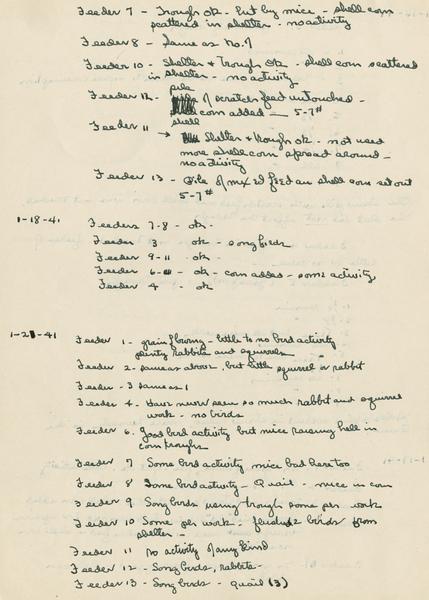 Feeder 7 - Trough ok - hit by mice - shell corn
scattered in shelter - no activity
Feeder 8 - Same as No. 7
Feeder 10 - Shelter & Trough ok - shell corn scattered
in shelter - no activity
pile
Feeder 12 - of scratch feed untouched -
corn added - 5-7#
shell
Feeder 11 → Shelter & trough ok - not used
more shell corn spread around -
no activity
Feeder 13 - Pile of mixed feed and shell corn set out
5-7#
1-18-41 Feeders 7-8 - ok -
Feeder 3 - ok - songbirds
Feeder 9-11 - ok -
Feeder 6- - ok - corn added - some activity
Feeder 4 ok
1-2-41 Feeder 1 - grain flowing - little to no bird activity
plenty rabbits and squirrels
Feeder 2 - same as above, but little squirrel or rabbit
Feeder - 3 same as 1
Feeder 4 - Have never seen so much rabbit and squirrel
work - no birds
Feeder 6. Good bird activity but mice raising hell in
corn troughs
Feeder 7 Some bird activity mice bad here too
Feeder 8 Some bird activity - Quail - mice in corn
Feeder 9 Song birds using trough some pen work
Feeder 10 Some pen work - flushed 2 birds from
shelter -
Feeder 11 no activity of any kind
Feeder 12 - Song birds, rabbits -
Feeder 13 - Song birds - quail (3)